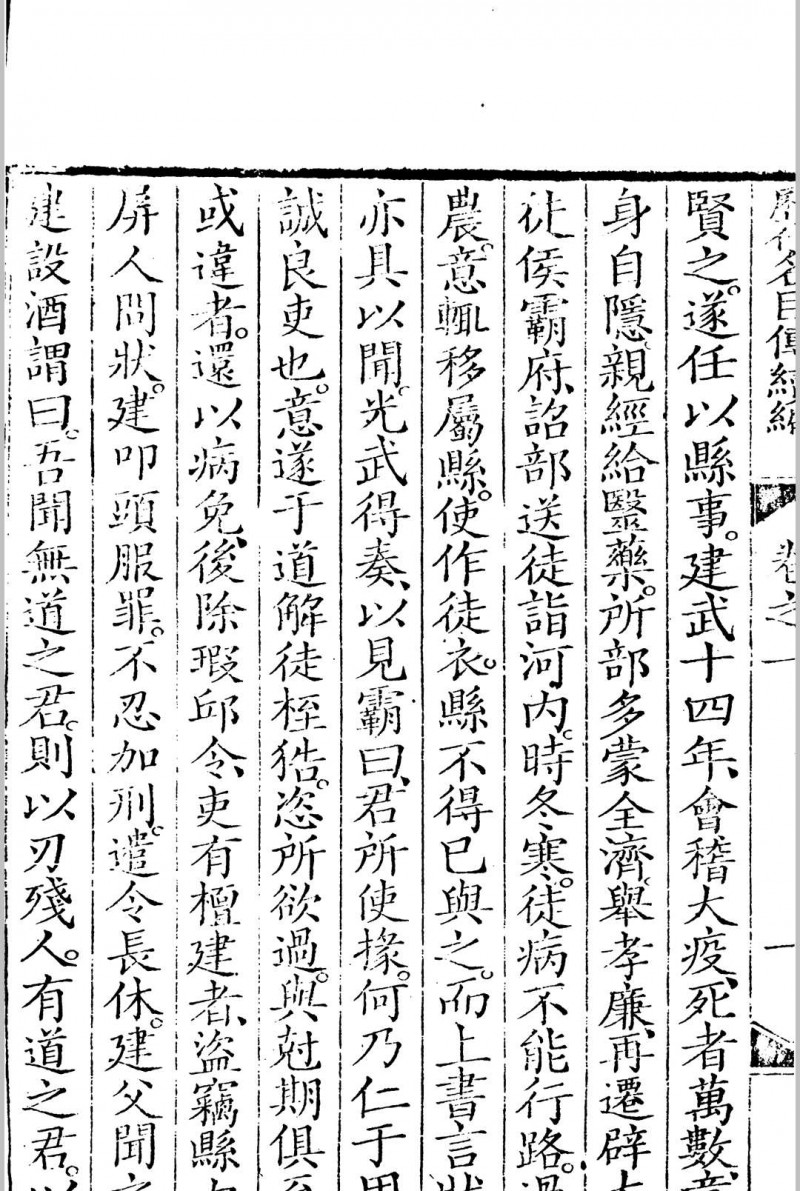 歷代名臣傳續編
卷之一
一
賢之。遂任以縣事。建武十四年、會稽大疫、死者萬數、意
身自隱。親經給醫藥。所部多蒙全濟。舉孝廉、再遷辟大
徒侯霸府、詔部送徒詣河內。時冬寒。徒病不能行路。過
農。意輒移屬縣。使作徒衣。縣不得已與之。而上書言狀
亦具以聞。光武得奏、以見霸曰、君所使掾。何乃仁于用
誠良吏也。意遂于道解徒桎梏。恣所欲過。與尅期俱至
或違者。還以病免、後除瑕邱令、吏有檀建者、盜竊縣內
屏人問狀。建叩頭服罪。不忍加刑。遣令長休。建父聞之
建設酒謂曰。吾聞無道之君。則以刃殘人。有道之君。以